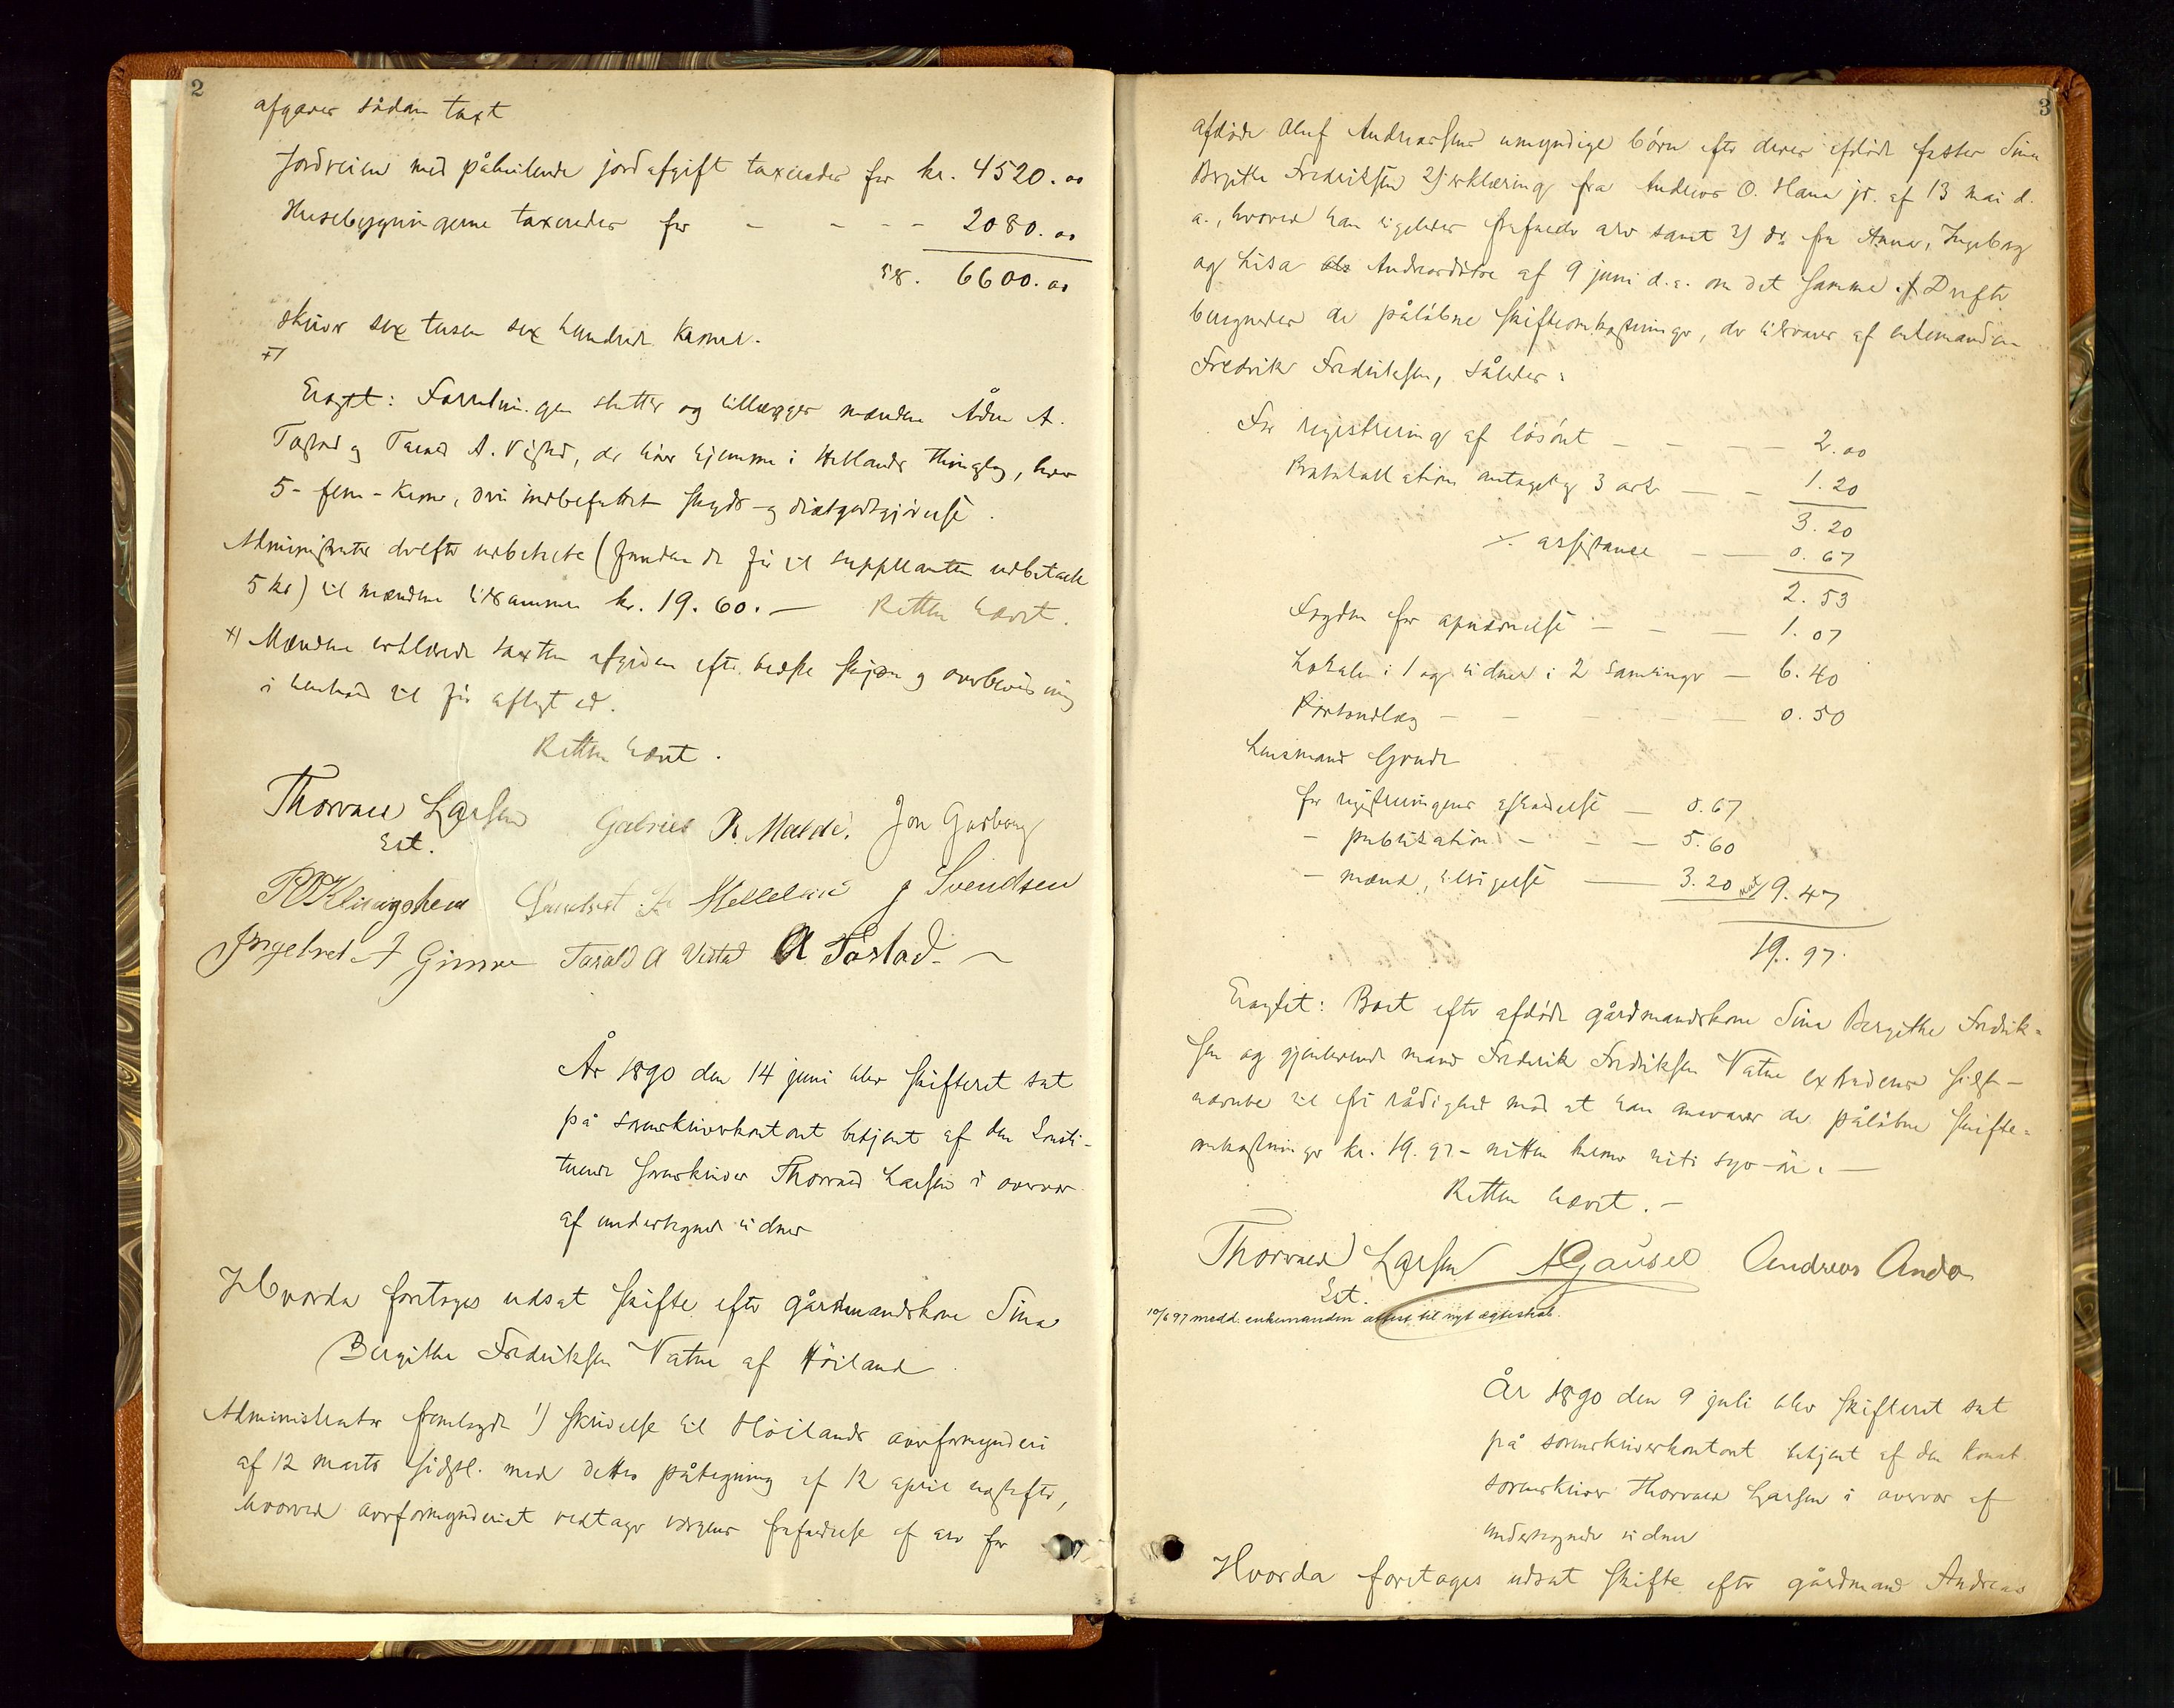 2
afgaves sådan taxt
Jordveien med påhvilende jordafgift taxeredes for kr. 4520.00
Husebygningerne taxeredes for - - - - 2080.00
6600.00
skriver sex tusen sex hundrede Kroner.
x)
Eragtet: Forretningen slutter og tillægges mændene Ådne A.
Tastad og Tarald A. Vistad, der hører hjemme i Hetlands thinglag, hver
5 - fem - Kroner, deri indbefattet skyds- og diætgodtgjørelse.
Administrator derefter udbetalte (foruden de før til supplanten udbetalte
5 kr) til mændene tilsammen kr. 19.60. — Retten hævet.
x) Mændene erklærede taxten afgiven efter bedste skjøn og overbevisning
i henhold til før aflagt ed.
Retten hævet.
Thorvald Larsen Gabriel B. Malde. Jon Gusborg
cst.
Klingsheim Helleland J Svendsen
Ingebret A Gimre Tarald A Vistad A Tastad
År 1890 den 14 juni blev skifteret sat
på sorenskriverkontoret betjent af den consti-
tuerede sorenskriver Thorvald Larsen i overvær
af undertegnede vidner
Hvorda foretoges udsat skifte efter gårdmandskone Sina
Bergithe Fredriksen Vatne af Höiland
Administrator fremlagde 1) skrivelse til Höilands overformynderi
af 12 marts sidstl. med dettes påtegning af 12 april næstefter,
hvorved overformynderiet vedtager vergens frafaldelse af arv for
3
afdøde Oluf Andreassens umyndige börn efter deres afdöde faster Sina
Bergithe Fredriksen 2) erklæring fra Andreas O. Hana jr. af 13 mai d.
a., hvorved han ligeledes frafalder arv samt 3) do fra Anna, Ingeborg
og Lisa Andreasdötre af 9 juni d.a. om det samme. Derefter
beregnedes de påløbne skifteomkostninger, der tilsvares af enkemanden
Fredrik Fredriksen, således:
For registrering af lösöret - - - 2.00
Protokollation antagelig 3 ark - - 1.20
3.20
÷ assistance - - 0.67
2.53
Fogden for opnævnelse - - - 1.07
Lokale i 1 og vidner i 2 samlinger - 6.40
Portoudlæg - - - - 0.50
Lensmand Grude
for registreringens afholdelse - 0.67
- publikation - - - 5.60
- mænd, tilsigelse - 3.20 9.47
19.97.
Eragtet: Boet efter afdöde gårdmandskone Sina Bergithe Fredrik-
sen og gjenlevende mand Frederik Fredriksen Vatne extraderes sidst-
nævnte til fri rådighed mod at han ansvarer de påløbne skifte-
omkostninger kr. 19.97 - nitten kroner niti syv öre. —
Retten hævet. -
Thorvald Larsen AGausel Andreas Anda
cst.
10/6 97 medd. enkemanden attest til nyt ægteskab.
År 1890 den 9 juli blev skifteret sat
på sorenskriverkontoret betjent af den konst.
sorenskriver Thorvald Larsen i overvær af
undertegnede vidner
Hvorda foretoges udsat skifte efter gårdmand Andreas